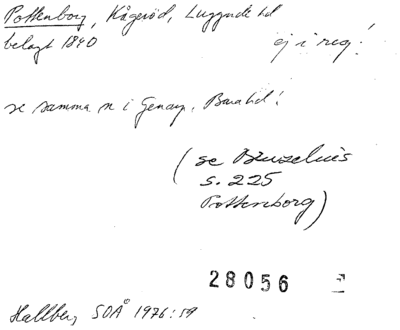 Pottenborg, Kågeröd, Luggude hd
belagt 1840 ej i reg!
se samma n i Genarp, Bara hd!
(se Bruzelius
s. 225
Pottenborg)
28056
Hallberg SOÅ 1976:59